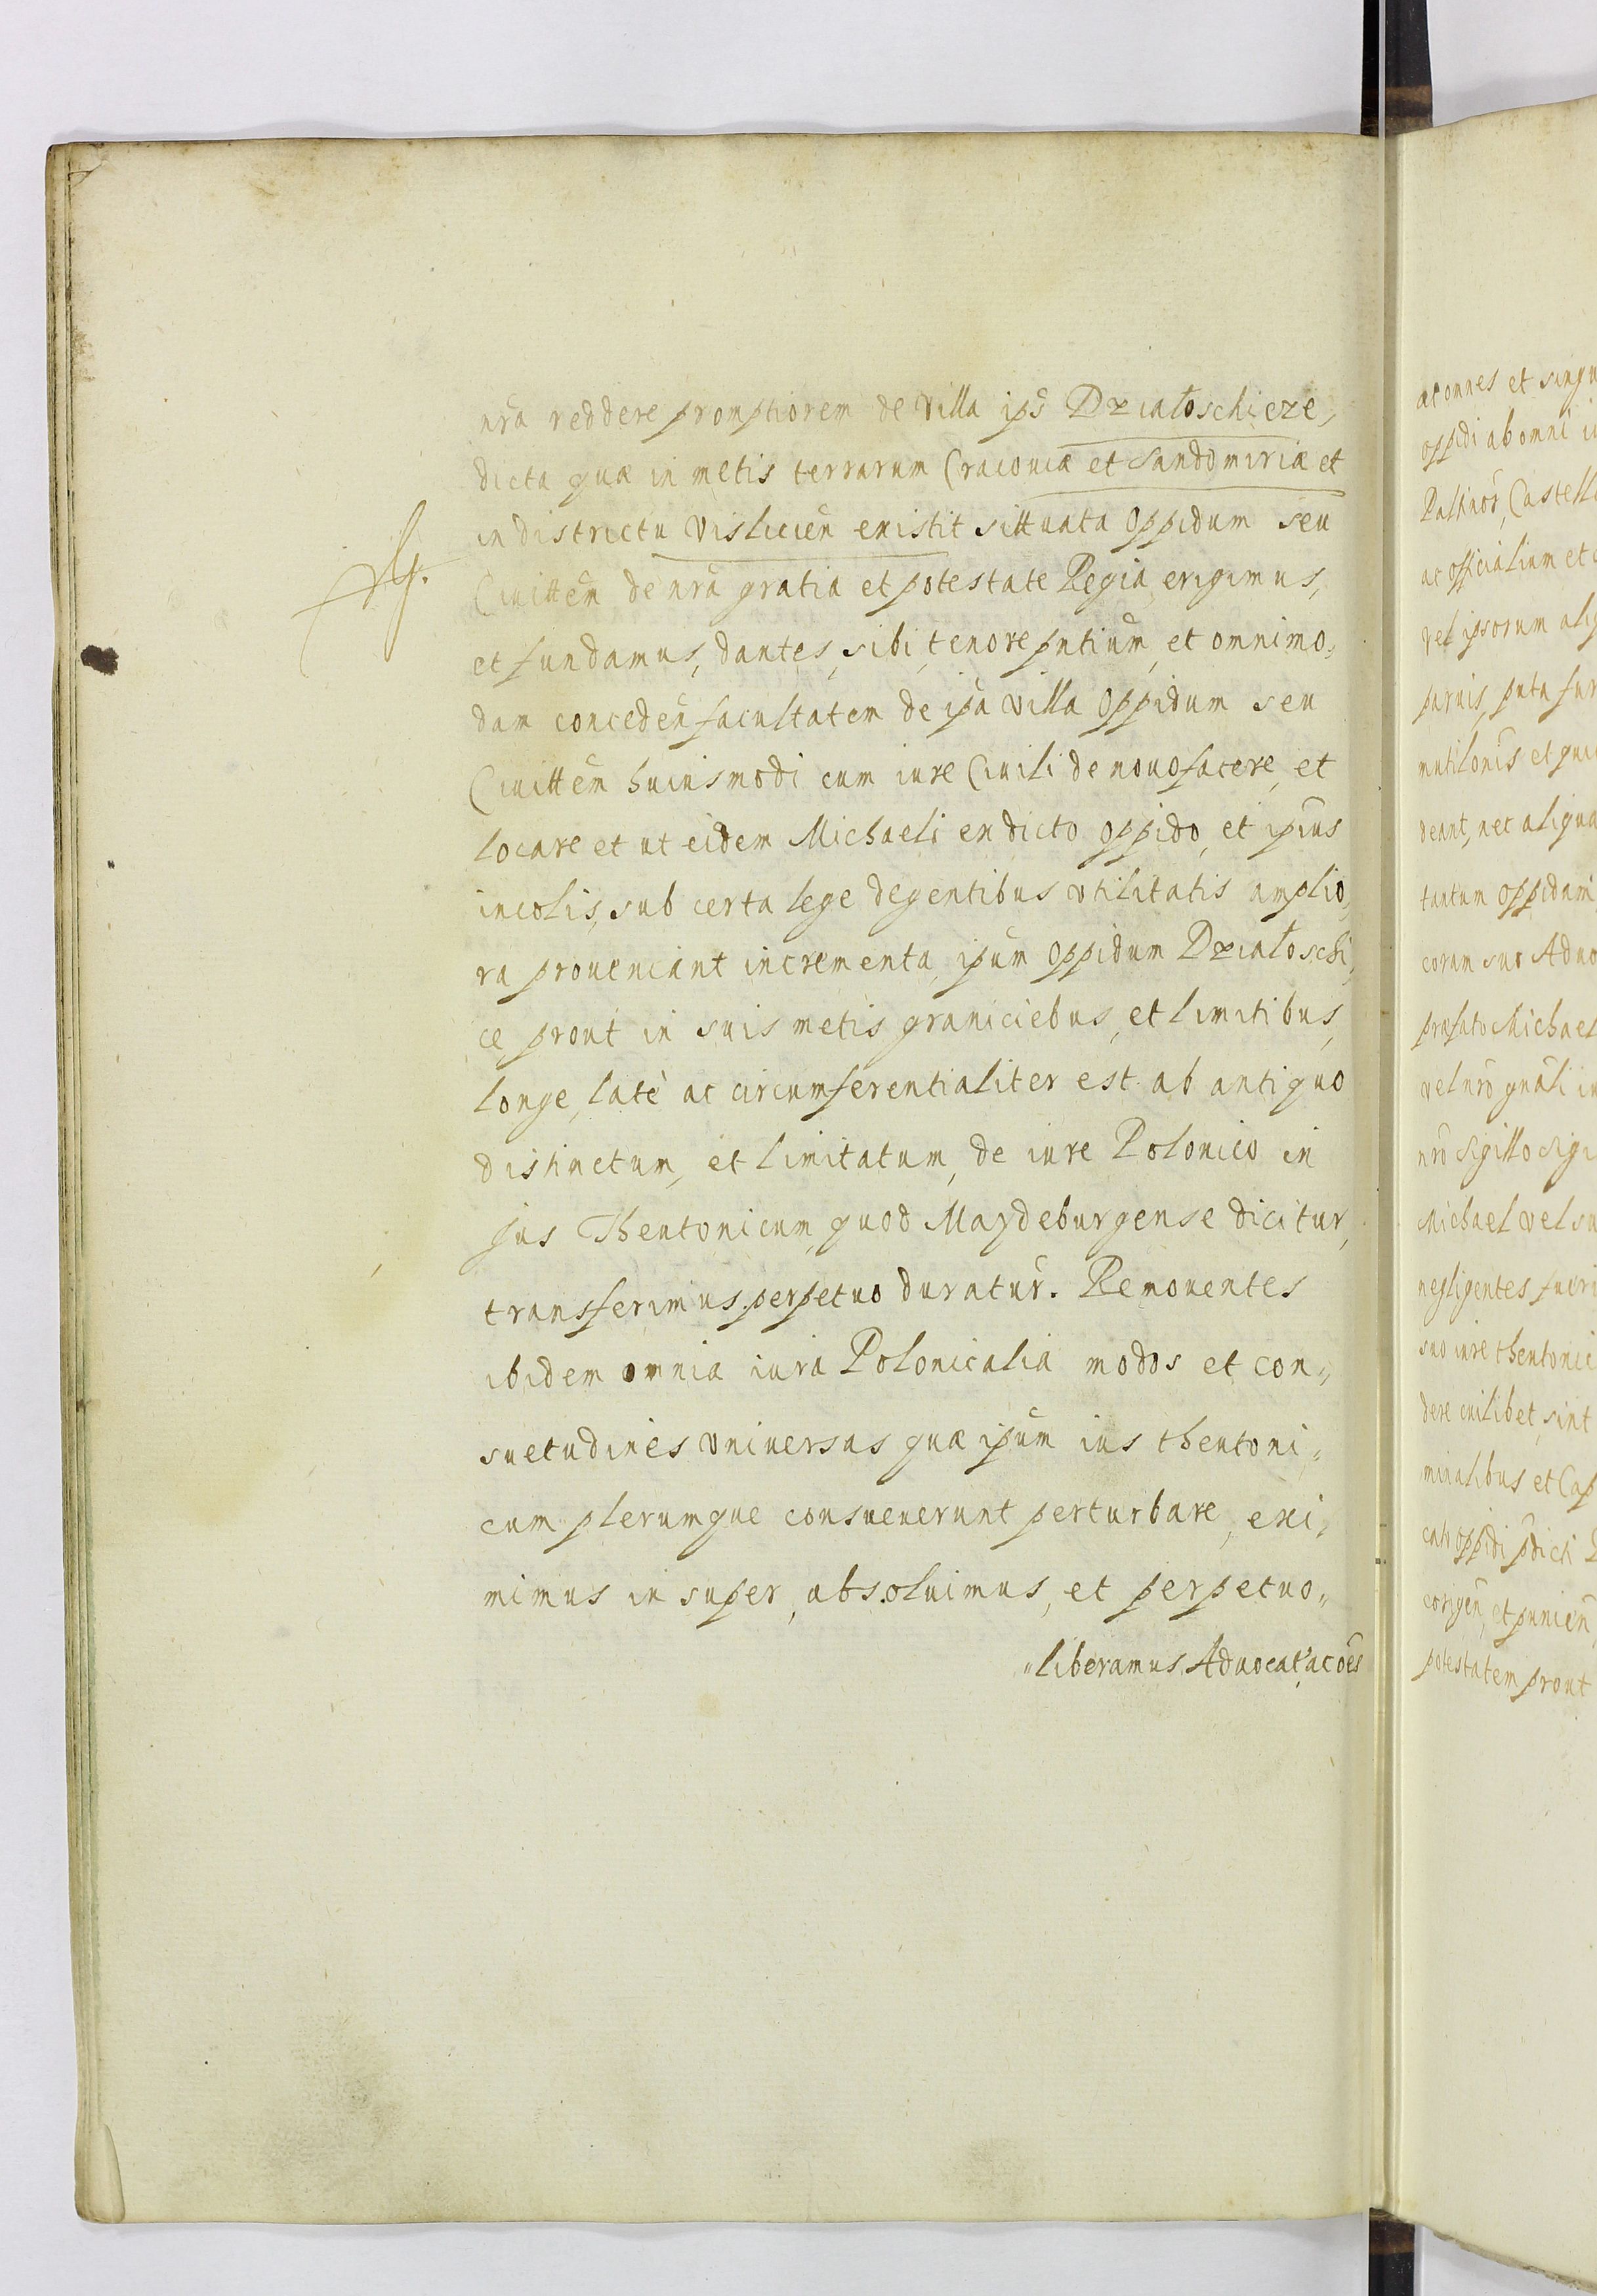 nrã reddere promptiorem de villa ips̃ Działoschicze,
dicta quæ in metis terrarum Cracouiæ et Sandomiriæ et
in districtu Visliciẽn existit sittuata Oppidum seu
Ciuittẽm de nrã gratia et potestate Regia, erigimus,
et fundamus, dantes, sibi tenore pñtium, et omnimo„
dam concedeñ facultatem de ipã villa Oppidum seu
Ciuittẽm huiusmodi cum iure Ciuili de nouo facere, et
locare et ut eidem Michaeli ex dicto oppido, et ipĩus
incolis, sub certa lege degentibus vtilitatis amplio„
ra proueniant incrementa, ipũm Oppidum Działoschi„
ce, prout in suis metis, graniciebus, et limitibus,
longe, latè ac circumferentialiter est ab antiquo
distinctum, et limitatum, de iure Polonico in
jus Theutonicum, quod Maydeburgense dicitur,
transferimus perpetuo duratur̃. Remouentes
ibidem omnia iura Polonicalia modos et con„
suetudines vniuersas quæ ipũm ius theutoni„
cum plerumque consueuerunt perturbare, exi„
mimus in super, absoluimus, et perpetuo„
„liberamus Aduocat̃ac oẽs
ac omnes et singu
oppidi ab omni iu
Palinor̃, Castell
ac officialium et
vel ipsorum aliq
paruis, puta fur
mutilonĩs et qui
deant, nec aliqua
tantum oppidani
coram suo Aduo
præfato Michael
vel nr̃o gnãli in
nr̃o sigillo sigi
Michael vel su
negligentes fueri
suo iure theutonic
dere cuilibet, sint
minalibus et Cap
oppidi p̃dicti
corrigeñ, et punieñ
potestatem prout